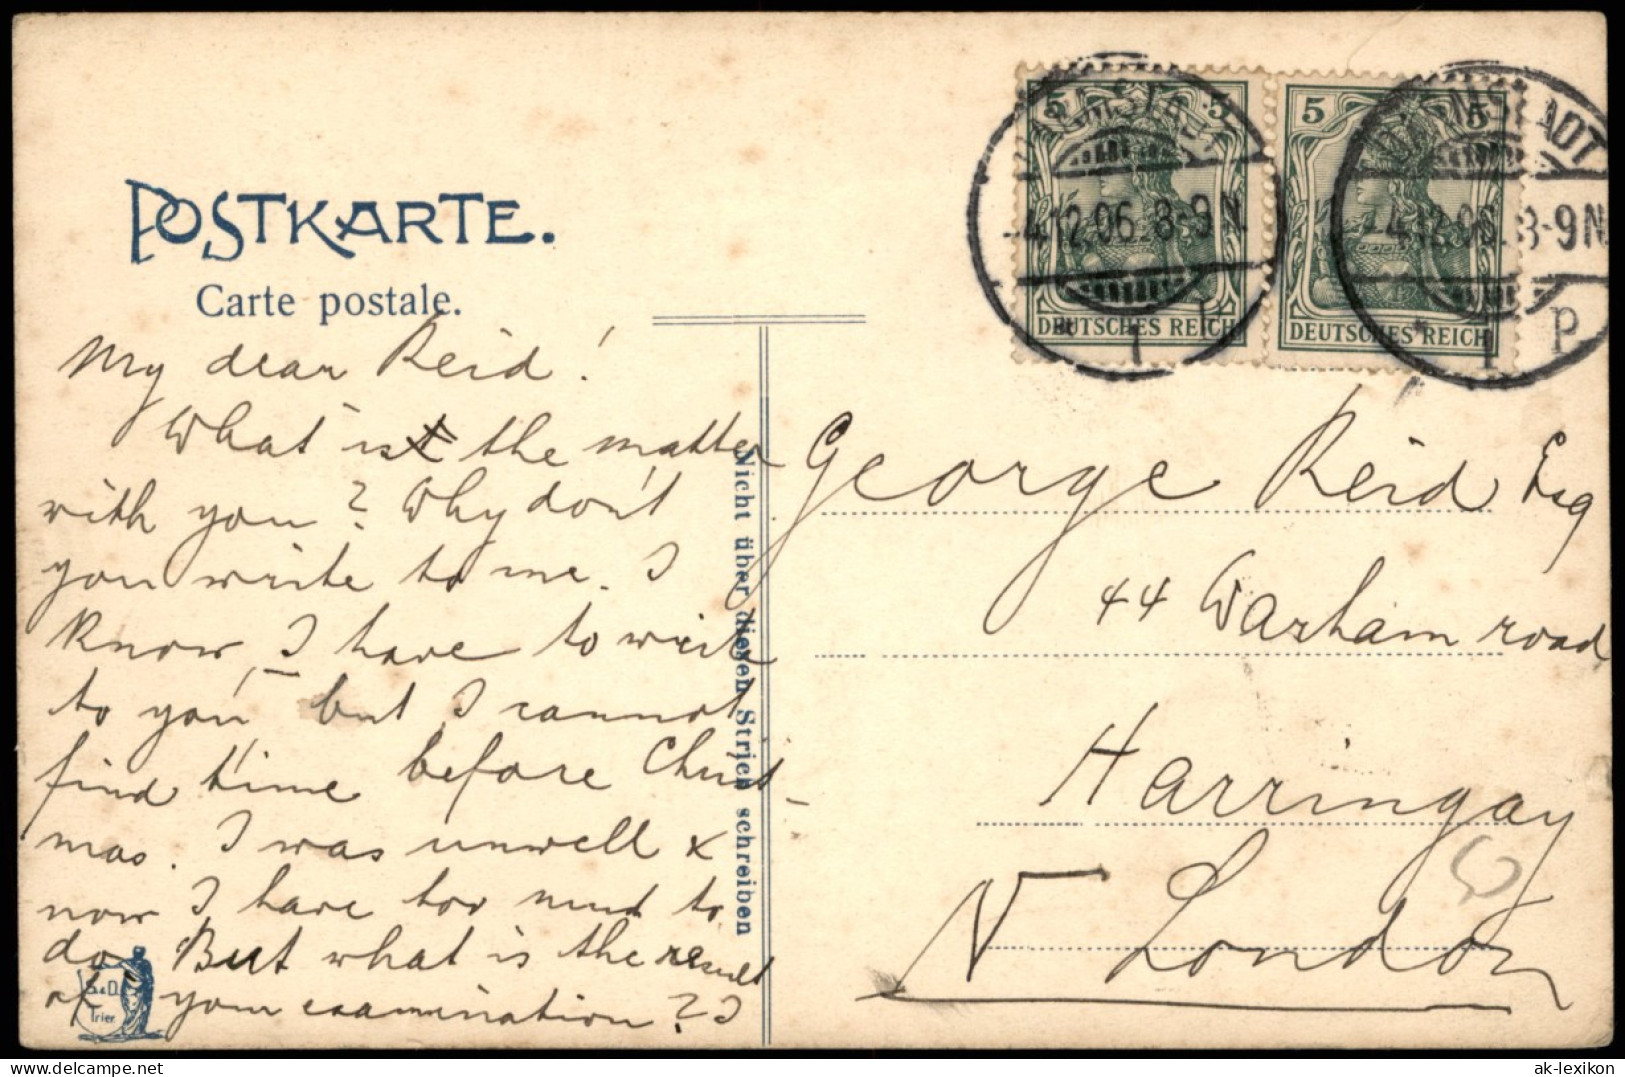 POSTKARTE.
Carte postale.
My dear Reid!
What is the matter
with you? Why don't
you write to me. I
know, I have to write
to you, but I cannot
find time before Christ-
mas. I was unwell &
now I have too much to
do. But what is the result
of your examination? I
S&D
Trier
Nicht über diesen Strich schreiben
5 5
DEUTSCHES REICH
DARMSTADT
-4.12.06. 8-9N
1 P
5 5
DEUTSCHES REICH
DARMSTADT
-4.12.06. 8-9N
1 P
George Reid Esq
44 Warham road
Harringay
N London
delcampe.net
ak-lexikon